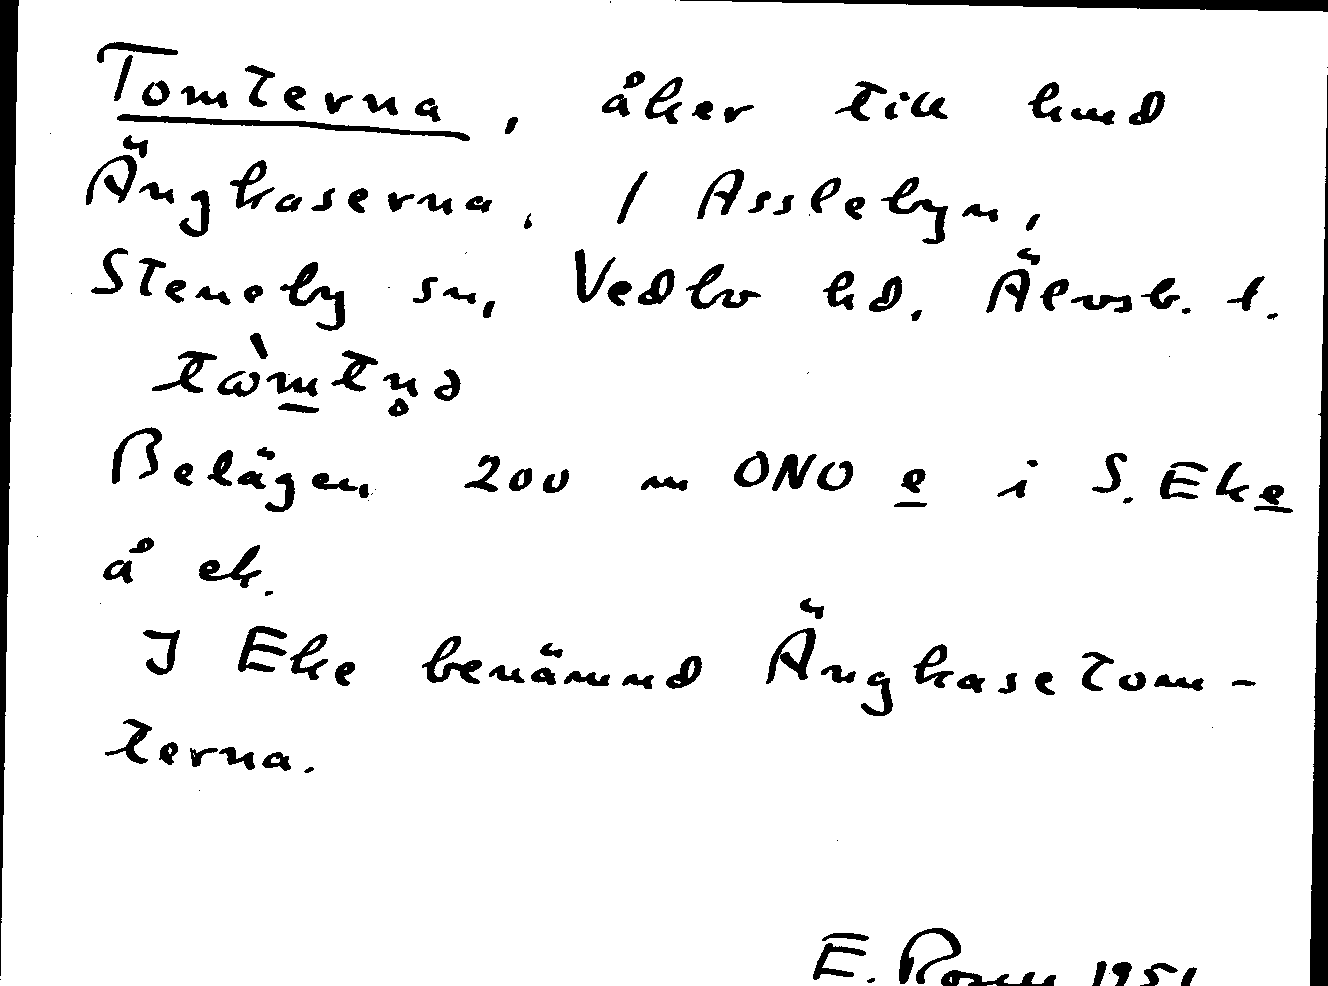 Tomterna, åker till hmd
Ängkaserna, 1 Asslebyn,
Steneby sn, Vedbo hd, Älvsb. l.
Belägen 200 m ONO e i S. Eke
å ek.
I Eke benämnd Ängkasetom-
terna.
E. 1951